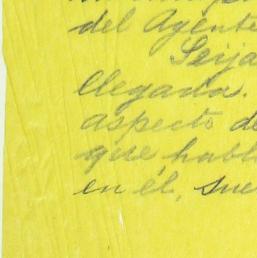 del Agente
Seija
llegada.
aspecto de
que habl
en él, sue